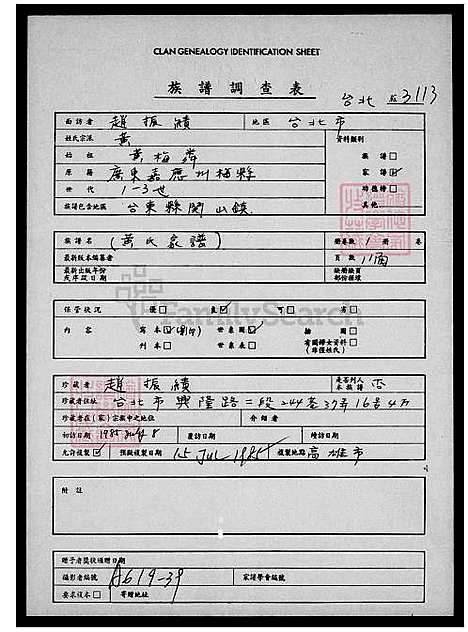 CLAN GENEALOGY IDENTIFICATION SHEET
族譜調查表
台北 3113
面訪者 趙振績 地區 台北市
姓氏宗派 黃 資料類別
始祖 黃梅 族譜□
原籍 廣東嘉應州梅縣 家譜☑
世代 1-3世 功德譜□
族譜包含地區 台東縣關山鎮 其他
族譜名 (黃氏家譜) 冊卷數 1 冊 卷
最新版本編纂者 頁數 11面
最新出版年份 缺損缺頁
或序跋日期 部份詳填
保管狀況 優□ 良☑ 可□ 劣□
內容 寫本☑(影印) 世系圖☑ 繪圖□
刊本□ 世系表□ 有關婦女資料□
珍藏者 趙振績 是否列入本族譜 否
珍藏者住址 台北市興隆路二段244巷37弄16号4F
珍藏者在(家)宗族中之地位 介紹者
初訪日期 1985 July 8 覆訪日期 續訪日期
允許複製☑ 預擬複製日期 15 Jul 1985 複製地點 高雄市
附註
贈予者獎狀頒贈日期
攝影者編號 A619-39 家譜學會編號
要求複本□ 寄贈地址
FamilySearch